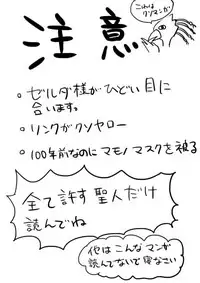 注意
こんな
クソマンガ
○ ゼルダ様がひどい目に
合います。
○ リンクがクソヤロー
○ 100年前なのにマモノマスクを被る
全て許す聖人だけ
読んでね
他はこんなマンガ
読んでないで寝なさい